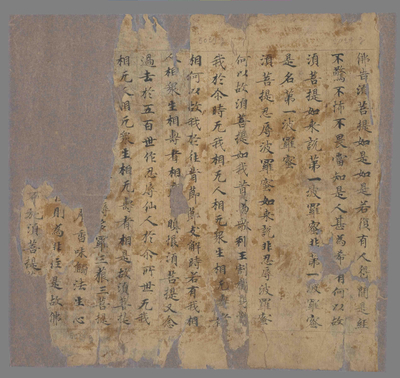 佛告須菩提如是如是若復有人得聞是經
不驚不怖不畏當知是人甚為希有何以故
須菩提如來說第一波羅蜜非第一波羅蜜
是名第一波羅蜜
須菩提忍辱波羅蜜如來說非忍辱波羅蜜
何以故須菩提如我昔為歌利王割截身體
我於尒時无我相无人相无衆生相无壽者
相何以故我於往昔節節支解時若有我相
人相衆生相壽者相瞋恨須菩提又念
過去於五百世作忍辱仙人於尒所世无我
相无人相无衆生相无壽者相是故須菩提
多羅三藐三菩提
香味觸法生心
為非住是故佛
施須菩提